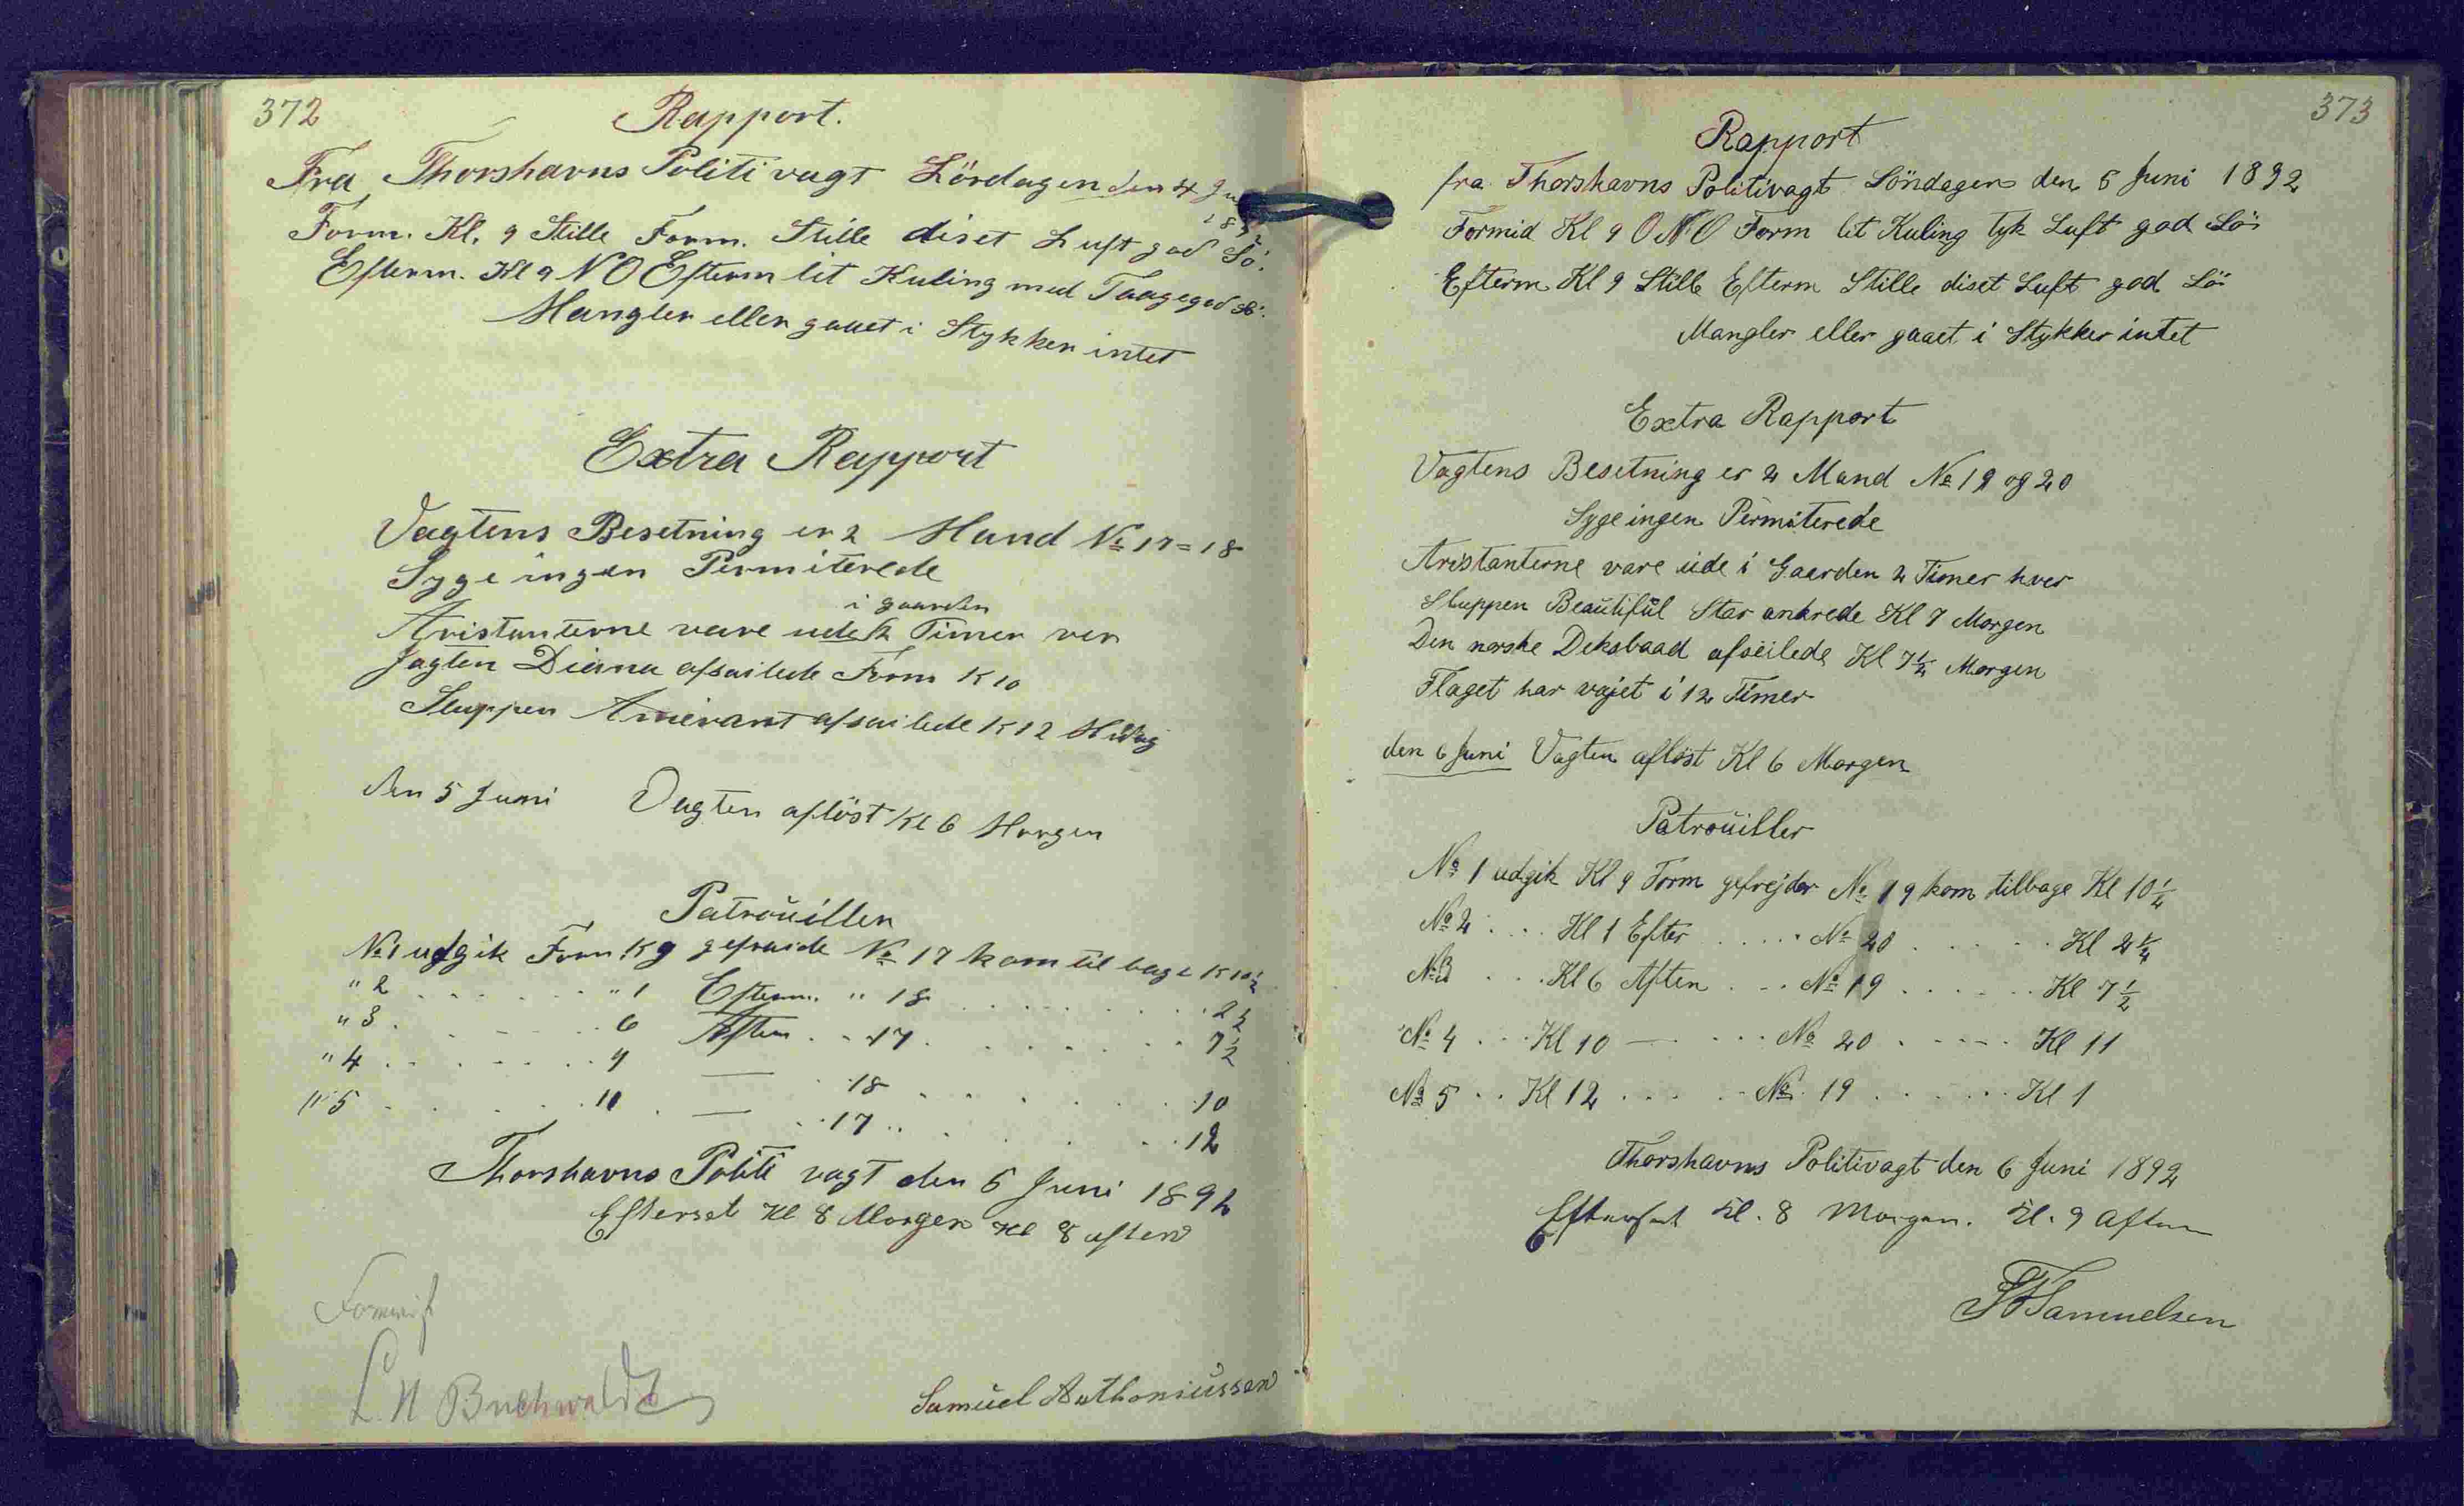 372
Rapport.
Fra Thorshavns Politivagt Lördagen den 4 Ju
18
Form. Kl. 9 Stille Form. Stille diset Luft god Sö.
Efterm. Kl 9 NO Efterm lit Kuling med Taage god Sö.
Mangler eller gaaet i Stykker intet
Extra Rapport
Vagtens Besetning er 2 Mand No 17=18
Syge ingen Permiterede
i gaarden
Aristanterne vare ude 2 Timer ver
Jagten Diana afsailede Form K 10
Sluppen afsailede K 12 Midag
den 5 Juni Vagten aflöst Kl 6 Morgen
Patroüiller
No 1 udgik Form K 9 gefraide No 17 kom til bage K 10½
" 2 . . . . . . " 1 Efterm. " 18 . . . . . . 2½
" 3 . . . . . 6 Aften . . 17 . . . . . . 7½
" 4 . . . . . . 9 — . 18 . . . . . . 10
" 5 . . . . . 11 . — . . 17 . . . . . . 12
Thorshavns Politi vagt den 5 Juni 1892
Efterset Kl 8 Morgen Kl 8 aften
L. N Buchwaldt
Samüel Anthoniüssen
373
Rapport
fra Thorshavns Politivagt Söndagen den 5 Juni 1892
Formid Kl 9 ONO Form let Kuling tyk Luft god Sö
Efterm Kl 9 Stille Efterm Stille diset Luft god Sö
Mangler eller gaaet i Stykker intet
Extra Rapport
Vagtens Besetning er 2 Mand No 19 og 20
Syge ingen Permiterede
Aristanterne vare ude i Gaarden 2 Timer hver
Sluppen Beaütifül Star ankrede Kl 7 Morgen
Den norske Deksbaad afseilede Kl 7¼ Morgen
Flaget har vajet i 12 Timer
den 6 Juni Vagten aflöst Kl 6 Morgen
Patroüiller
No 1 udgik Kl 9 Form gefrejder No 19 kom tilbage Kl 10¼
No 2 . . . . Kl 1 Efter . . . . . No 20 . . . . . . Kl 2¼
No 3 . . . Kl 6 Aften . . . No 19 . . . . . . Kl 7½
No 4 . . . Kl 10 — . . . . No 20 . . . . . Kl 11
No 5 . . Kl 12 . . . . . No 19 . . . . . . Kl 1
Thorshavns Politivagt den 6 Juni 1892
Efterset Kl. 8 Morgen. Kl. 9 Aften
Samuelsen